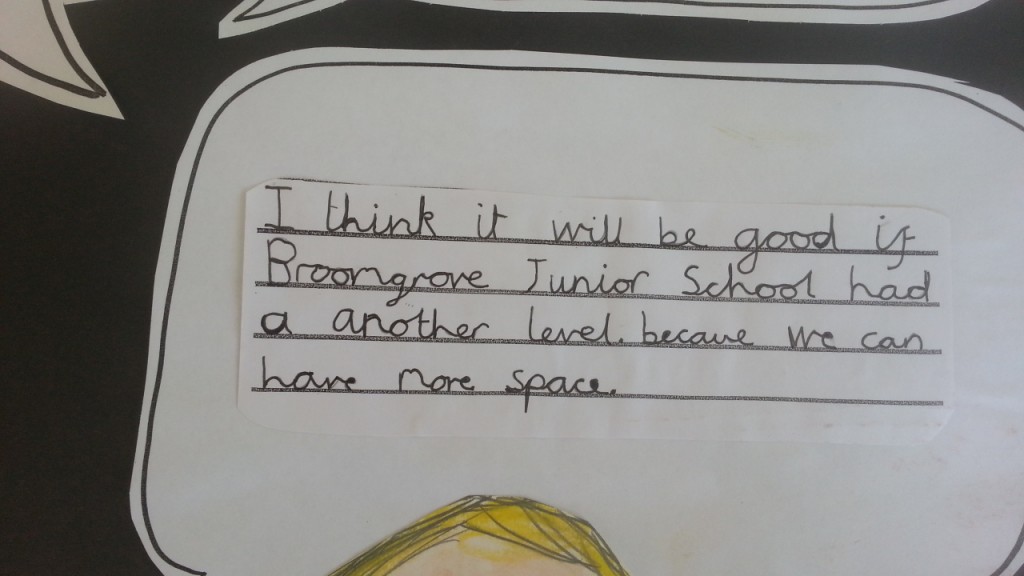 I think it will be good if
Broomgrove Junior School had
a another level. because we can
have more space.